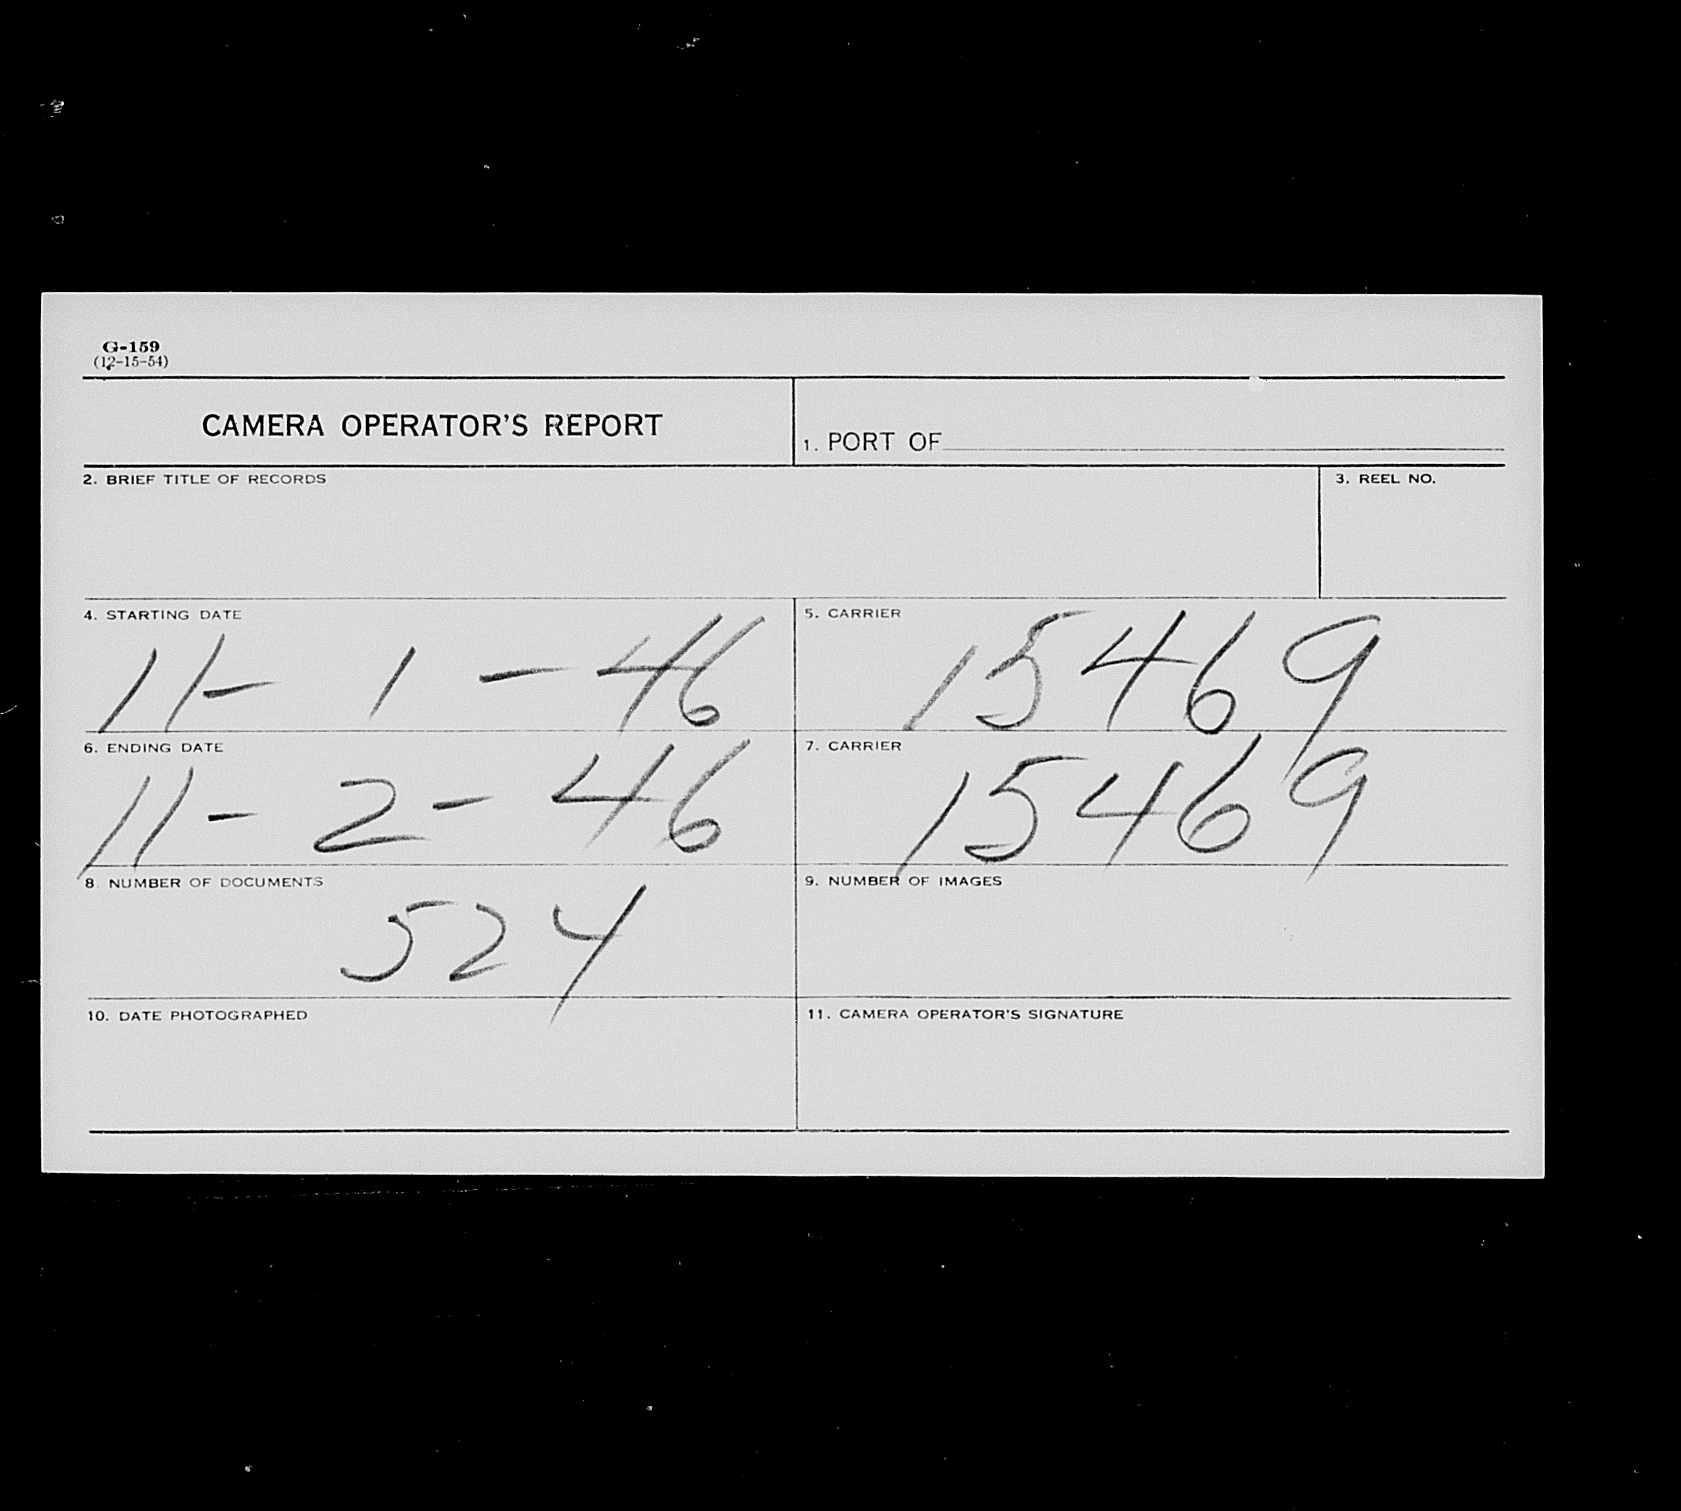 G-159
(12-15-54)
CAMERA OPERATOR'S REPORT
1. PORT OF
2. BRIEF TITLE OF RECORDS
3. REEL NO.
4. STARTING DATE
11-1-46
5. CARRIER
15469
6. ENDING DATE
11-2-46
7. CARRIER
15469
8. NUMBER OF DOCUMENTS
524
9. NUMBER OF IMAGES
10. DATE PHOTOGRAPHED
11. CAMERA OPERATOR'S SIGNATURE